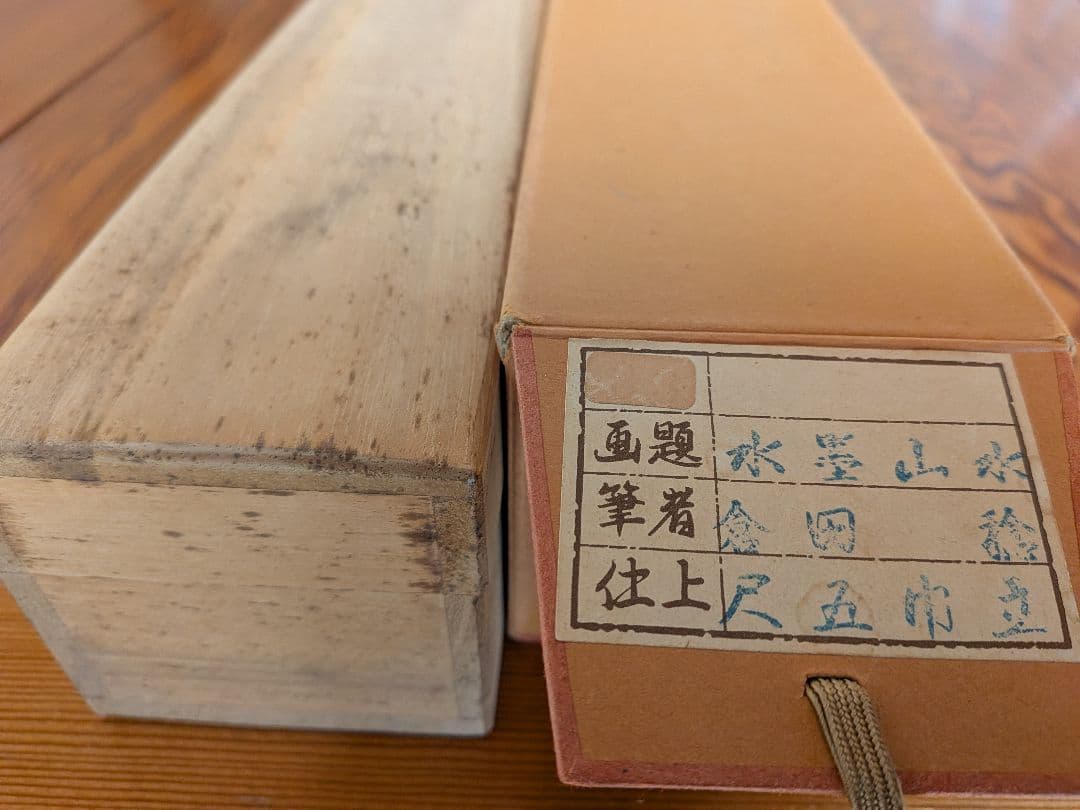 画題 水墨山水
筆者 倉岡
仕上 尺五巾立